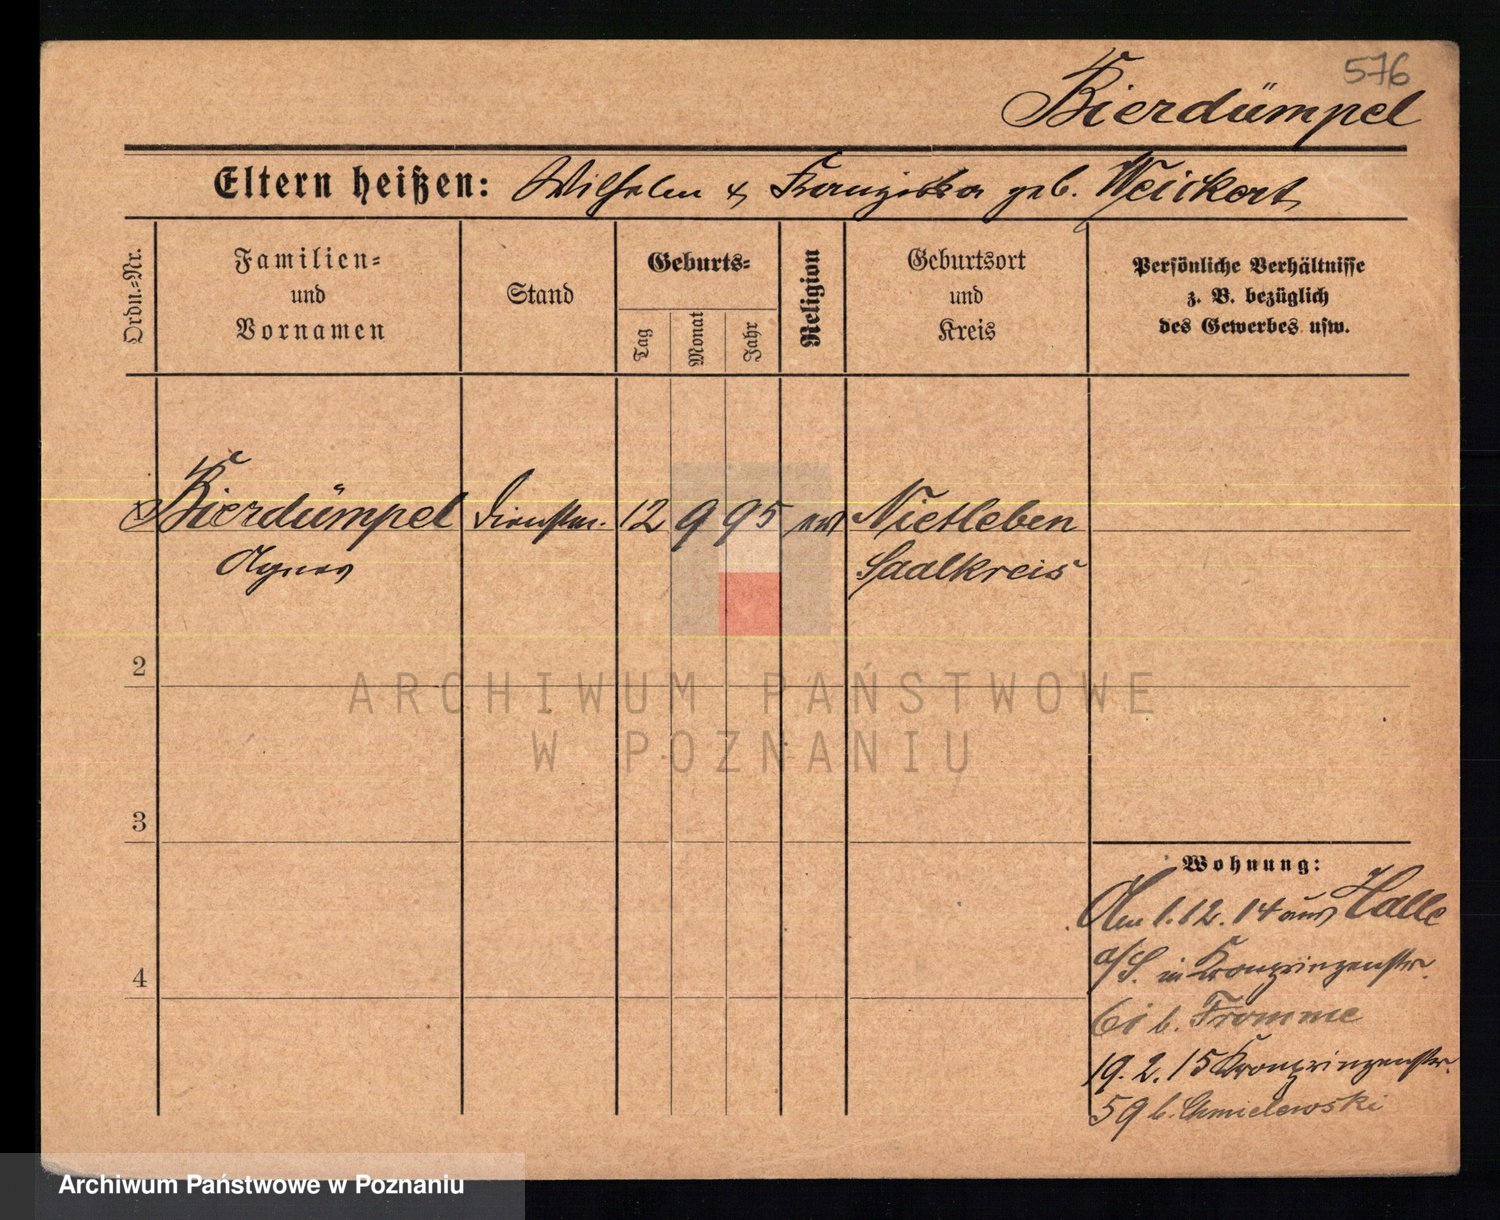 576
Bierdümpel
Eltern heißen: Wilhelm & Franziska geb. Weickert
Ordn.=Nr.
Familien=
und
Vornamen
Stand
Geburts=
Tag
Monat
Jahr
Religion
Geburtsort
und
Kreis
Persönliche Verhältnisse
z. B. bezüglich
des Gewerbes usw.
Bierdümpel Dienstm. 12 9 95 ev Nietleben
Agnes Saalkreis
2
ARCHIWUM PAŃSTWOWE
W POZNANIU
3
Wohnung:
Am 1.12.14 aus Halle
a/S. in Kronprinzenstr.
6i b. Fromme
4
19.2.15 Kronprinzenstr.
59 b. Chmielewski
Archiwum Państwowe w Poznaniu